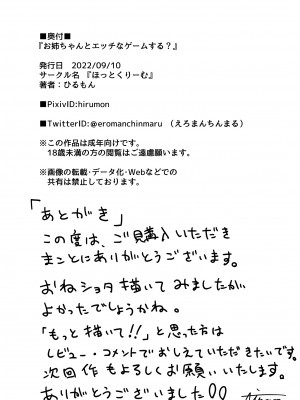 ■奥付■
『お姉ちゃんとエッチなゲームする？』
発行日　2022/09/10
サークル名 『ほっとくりーむ』
著者：ひるもん
■PixivID:hirumon
■TwitterID:@eromanchinmaru　(えろまんちんまる)
※この作品は成年向けです。
18歳未満の方の閲覧はご遠慮願います。
※画像の転載・データ化・Webなどでの
共有は禁止しております。
「あとがき」
この度は、ご購入いただき
まことにありがとうございます。
おねショタ描いてみましたが
よかったでしょうかね。
「もっと描いて!!」と思った方は
レビュー・コメントでおしえていただきたいです。
次回作もよろしくお願いいたします。
ありがとうございました